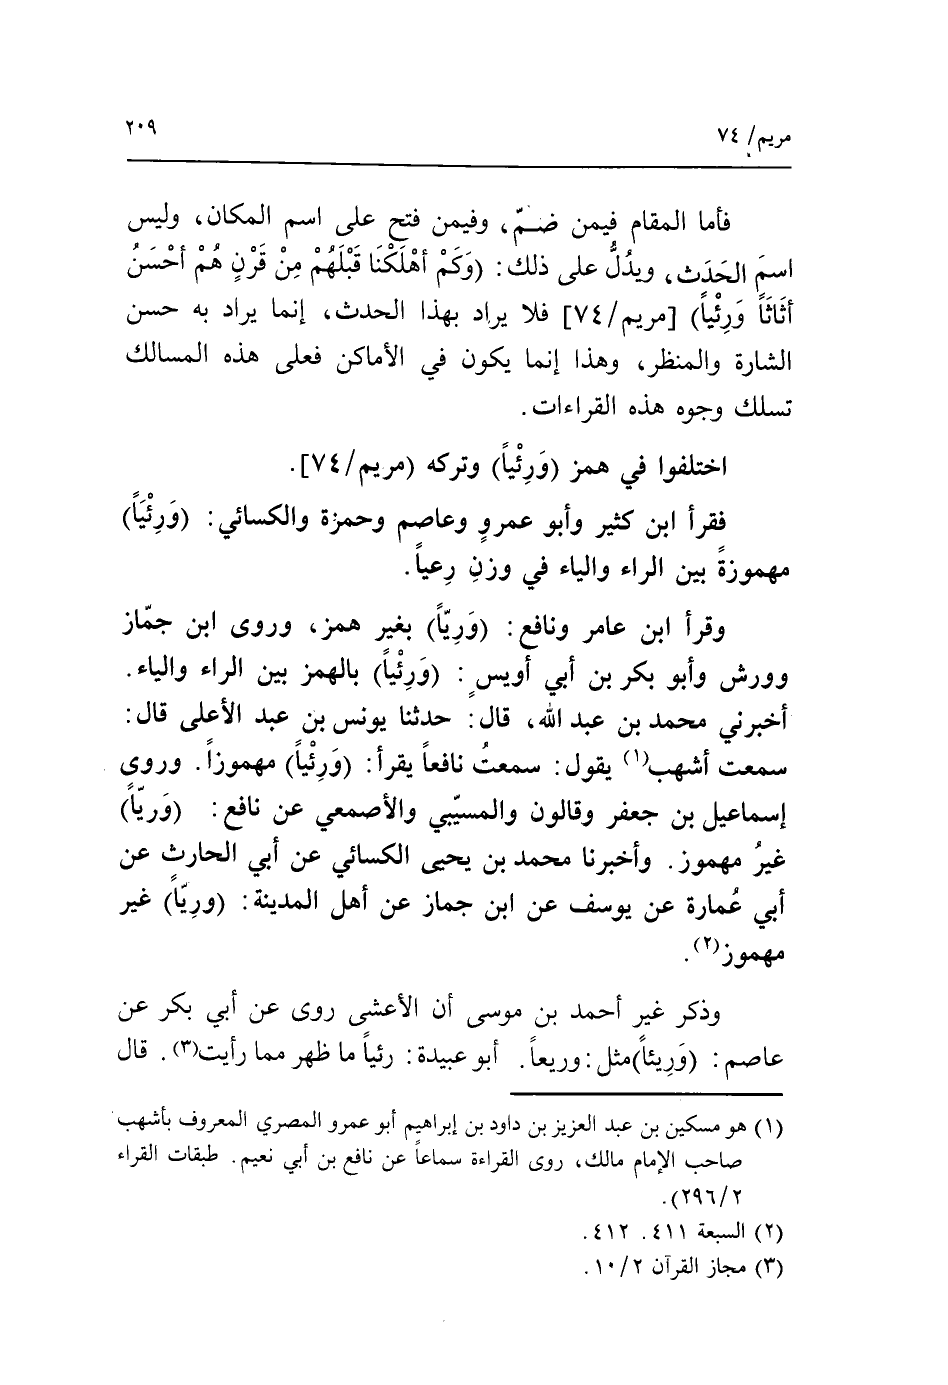 مريم/ ٧٤
٢٠٩
فأما المقام فيمن ضـمّ، وفيمن فتح على اسم المكان، وليس
اسمَ الحَدَث، ويدُلُّ على ذلك: (وَكَمْ أهْلَكْنَا قَبْلَهُمْ مِنْ قَرْنٍ هُمْ أحْسَنُ
أثَاثَاً وَرِئْياً) [مريم/٧٤] فلا يراد بهذا الحدث، إنما يراد به حسن
الشارة والمنظر، وهذا إنما يكون في الأماكن فعلى هذه المسالك
تسلك وجوه هذه القراءات.
اختلفوا في همز (وَرِئْياً) وتركه (مريم/٧٤].
فقرأ ابن كثير وأبو عمروٍ وعاصم وحمزة والكسائي: (وَرِئْيَاً)
مهموزةً بين الراء والياء في وزنِ رِعياً.
وقرأ ابن عامر ونافع: (وَرِيّاً) بغير همز، وروى ابن جمّاز
وورش وأبو بكر بن أبي أويسٍ: (وَرِئْياً) بالهمز بين الراء والياء.
أخبرني محمد بن عبد الله، قال: حدثنا يونس بن عبد الأعلى قال:
سمعت أشهب(١) يقول: سمعتُ نافعاً يقرأ: (وَرِئْياً) مهموزاً. وروى
إسماعيل بن جعفر وقالون والمسيّبي والأصمعي عن نافع: (وَريّاً)
غيرُ مهموز. وأخبرنا محمد بن يحيى الكسائي عن أبي الحارث عن
أبي عُمارة عن يوسف عن ابن جماز عن أهل المدينة: (وريّاً) غير
مهموز(٢).
وذكر غير أحمد بن موسى أن الأعشى روى عن أبي بكر عن
عاصم: (وَرِيئاً)مثل:وريعاً. أبو عبيدة: رئياً ما ظهر مما رأيت(٣). قال
(١) هو مسكين بن عبد العزيز بن داود بن إبراهيم أبو عمرو المصري المعروف بأشهب
صاحب الإمام مالك، روى القراءة سماعاً عن نافع بن أبي نعيم. طبقات القراء
٢٩٦/٢).
(٢) السبعة ٤١١. ٤١٢.
(٣) مجاز القرآن ١٠/٢.